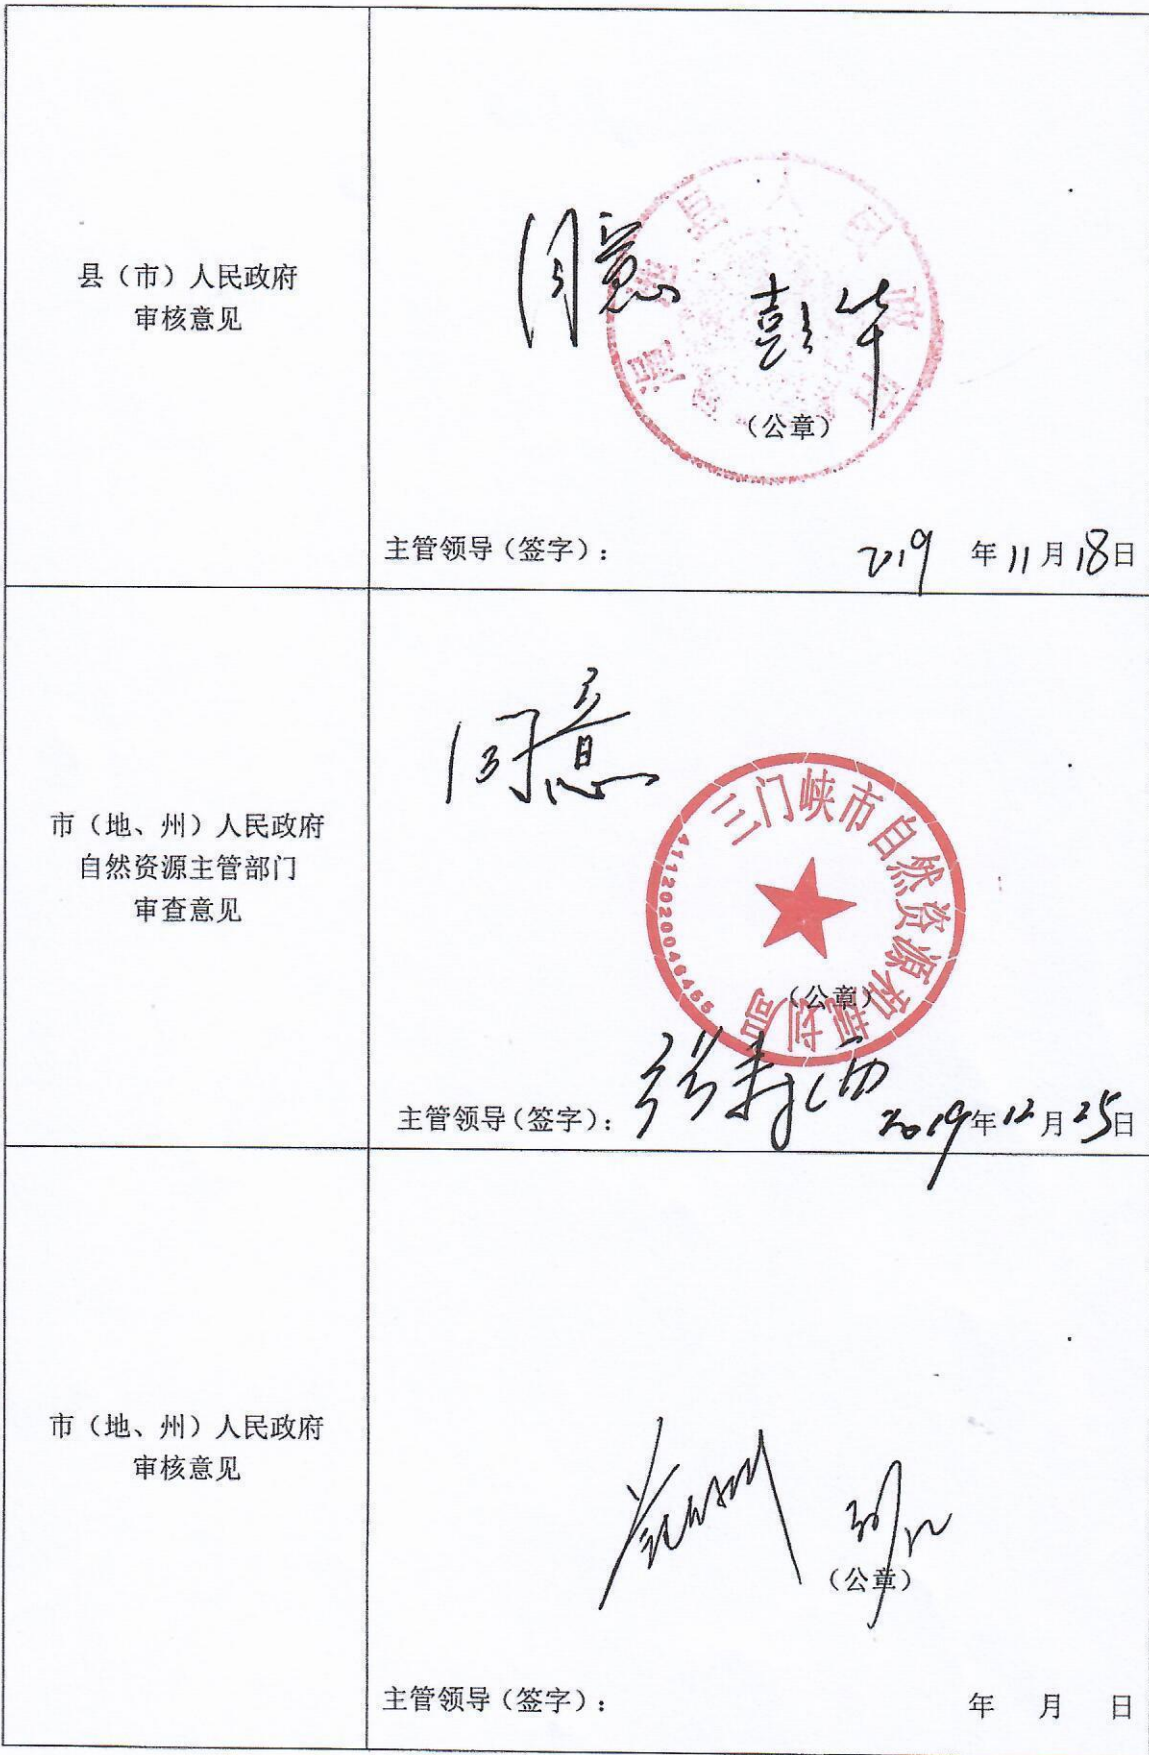 县（市）人民政府
审核意见
同意
彭华
（公章）
主管领导（签字）：
2019 年 11 月 18 日
市（地、州）人民政府
自然资源主管部门
审查意见
同意
三门峡市自然资源和规划局
4112020046455
（公章）
主管领导（签字）：
2019 年 12 月 25 日
市（地、州）人民政府
审核意见
（公章）
主管领导（签字）：
年 月 日